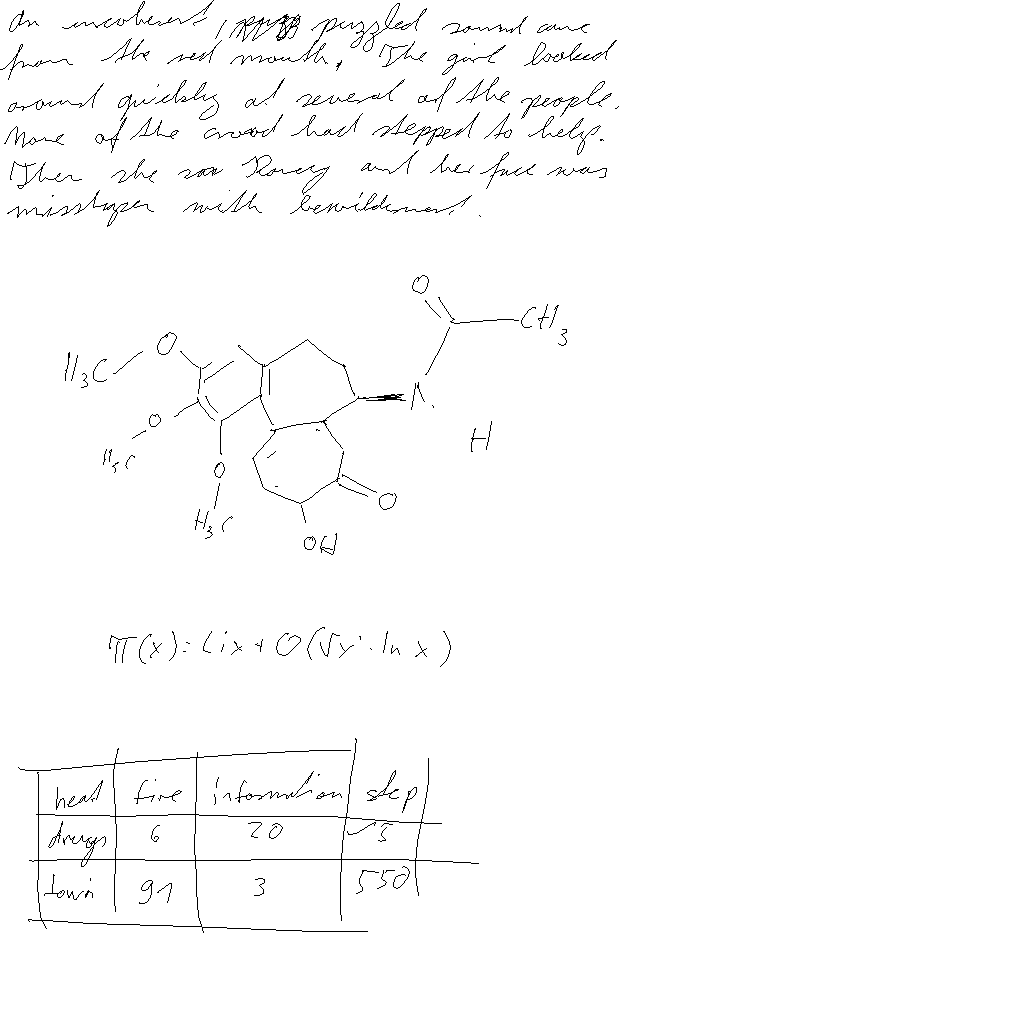 An incoherent, puzzled sound came
from the red mouth. The girl looked
around quickly at several of the people.
None of the crowd had stepped to help.
Then she saw and her face was
with
O
CH3
H3C O
N
O
H3C
H
O
O
H3C
OH
π(x) = Li x + O(√x · ln x)
heat fire information step
drugs 6 20 √3
town 91 3 550